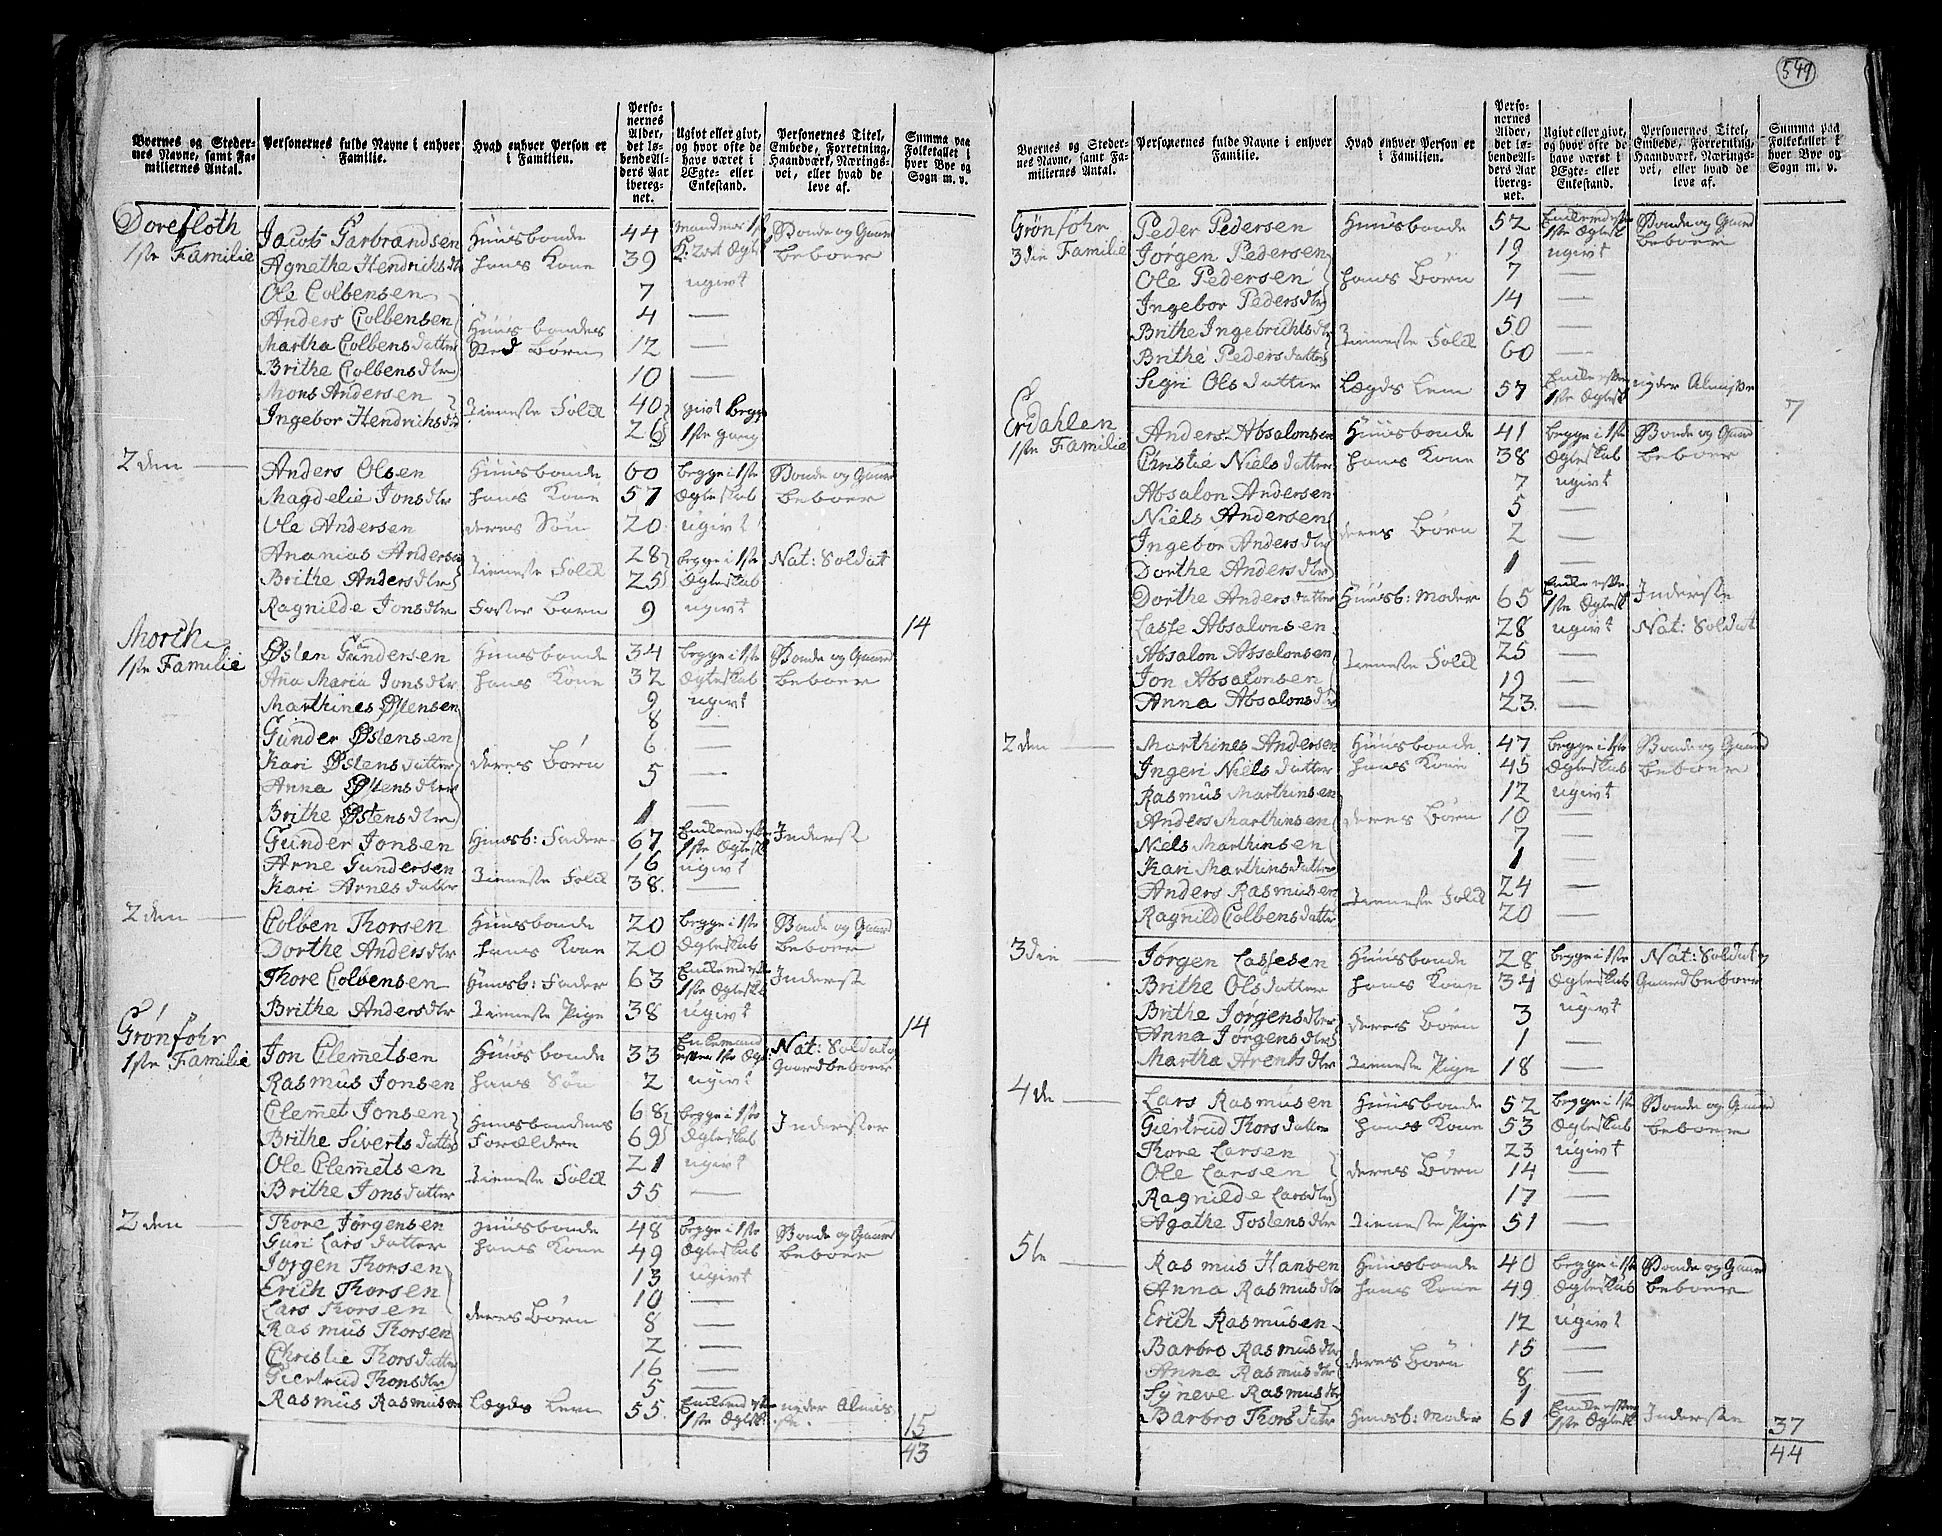 549
Byernes og Stedernes Navne, samt Familiernes Antal.
Personernes fulde Navne i enhver Familie.
Hvad enhver Person er i Familien.
Personernes Alder, det løbendeAlders Aar iberegnet.
Ugivt eller givt, og hvor ofte de have været i Ægte- eller Enkestand.
Personernes Titel, Embede, Forretning, Haandværk, Næringsvei, eller hvad de leve af.
Summa paa Folketallet i hver Bye og Sogn m. v.
Dorefloth
1ste Familie
Jacob Garbrandsen Huusbonde 44 Bonde og Gaard
Agnethe Hendrichs dtr hans Kone 39 beboer
Ole Colbensen 7 ugivt
Anders Colbensen Huusbondes 4 —
Martha Colbens datter Sted Børn 12 —
Brithe Colbens dtr 10 —
Mons Andersen Tieneste Folck 40 givt begge
Ingebor Hendrichs dtr 26 1ste gang
2den — Anders Olsen Huusbonde 60 begge i 1ste Bonde og Gaard
Magdelie Jons dtr hans Kone 57 Ægteskab beboer
Ole Andersen deres Søn 20 ugivt
Ananias Andersen Tieneste Folck 28 begge i 1ste Nat: Soldat
Brithe Anders dtr 25 Ægteskab
Ragnilde Jons dtr Foster Barn 9 ugivt
14
Morch
1ste Familie
Østen Gundersen Huusbonde 34 begge i 1ste Bonde og Gaard
Ana Maria Jons dtr hans Kone 32 Ægteskab beboer
Marthines Østensen 9 ugivt
Gunder Østensen 8 —
Kari Østens datter deres Børn 6 —
Anna Østens dtr 5 —
Brithe Østens dtr 1 —
Gunder Jonsen Huusb: Fader 67 1ste Ægtesk Inderst
Arne Gundersen Tieneste Folck 16 ugivt
Kari Arnes datter 38 —
2den — Colben Thorsen Huusbonde 20 begge i 1ste Bonde og Gaard
Dorthe Anders dtr hans Kone 20 Ægteskab beboer
Thore Colbensen Huusb: Fader 63 1ste Ægtesk Inderst
Brithe Anders dtr Tieneste Pige 38 ugivt
14
Grønfohr
1ste Familie
Jon Clemetsen Huusbonde 33 Enkemand efter 1ste Ægt Nat: Soldat og Gaardbeboer
Rasmus Jonsen hans Søn 2 ugivt
Clemet Jonsen Huusbondens 68 begge i 1ste Inderster
Brithe Siverts datter Forældre 69 Ægteskab
Ole Clemetsen Tieneste Folck 21 ugivt
Brithe Jons datter 55 —
2den — Thore Jørgensen Huusbonde 48 begge i 1ste Bonde og Gaard
Guri Lars datter hans Kone 49 Ægteskab beboer
Jørgen Thorsen 13 ugivt
Erich Thorsen 10 —
Lars Thorsen deres Børn 8 —
Rasmus Thorsen 2 —
Christie Thors datter 16 —
Giertrud Thors dtr 5 —
Rasmus Rasmusen Lægds Lem 55 1ste Ægtesk nyder Almisse
15
43
Byernes og Stedernes Navne, samt Familiernes Antal.
Personernes fulde Navne i enhver Familie.
Hvad enhver Person er i Familien.
Personernes Alder, det løbendeAlders Aar iberegnet.
Ugivt eller givt, og hvor ofte de have været i Ægte- eller Enkestand.
Personernes Titel, Embede, Forretning, Haandværk, Næringsvei, eller hvad de leve af.
Summa paa Folketallet i hver Bye og Sogn m. v.
Grønfohr
3die Familie
Peder Pedersen Huusbonde 52 1ste Ægtesk Bonde og Gaard beboer
Jørgen Pedersen 19 ugivt
Ole Pedersen hans Børn 7 —
Ingebor Peders dtr 14 —
Brithe Ingebrichts dtr Tieneste Folck 50 —
Brithe Peders datter 60 —
Sigri Ols datter Lægds Lem 57 Enke efter 1ste Ægtesk nyder Almisse
7
Erdahlen
1ste Familie
Anders Absalonsen Huusbonde 41 begge i 1ste Bonde og Gaard
Christie Niels datter hans Kone 38 Ægteskab beboer
Absalon Andersen 7 ugivt
Niels Andersen 5 —
Ingebor Anders dtr deres Børn 2 —
Dorthe Anders dtr 1 —
Dorthe Anders datter Huusb: Moder 65 Enke efter 1ste Ægtesk Inderste
Lasse Absalonsen 28 ugivt Nat: Soldat
Absalon Absalonsen Tieneste Folck 25 —
Jon Absalonsen 19 —
Anna Absalons dtr 23 —
2den — Marthines Andersen Huusbonde 47 begge i 1ste Bonde og Gaard
Ingeri Niels datter hans Kone 45 Ægteskab beboer
Rasmus Marthinsen 12 ugivt
Anders Marthinsen deres Børn 10 —
Niels Marthinsen 7 —
Kari Marthins datter 1 —
Anders Rasmusen Tieneste Folck 24 —
Ragnild Colbens datter 20 —
3die — Jørgen Lassesen Huusbonde 28 begge i 1ste Nat: Soldat og
Brithe Ols datter hans Kone 34 Ægteskab Gaardbeboer
Brithe Jørgens dtr deres Børn 3 ugivt
Anna Jørgens dtr 1 —
Martha Arents dtr Tieneste Pige 18 —
4de — Lars Rasmusen Huusbonde 52 begge i 1ste Bonde og Gaard
Giertrud Thors datter hans Kone 53 Ægteskab beboer
Thore Larsen 23 ugivt
Ole Larsen deres Børn 14 —
Ragnilde Lars dtr 17 —
Agathe Tostens dtr Tieneste Pige 51 —
5te — Rasmus Hansen Huusbonde 40 begge i 1ste Bonde og Gaard
Anna Rasmus dtr hans Kone 49 Ægteskab beboer
Erich Rasmusen 12 ugivt
Barbro Rasmus dtr deres Børn 15 —
Anna Rasmus dtr 8 —
Syneve Rasmus dtr 1 —
Barbro Thors datter Huusb: Moder 61 Enke efter 1ste Ægtesk Inderste
37
44